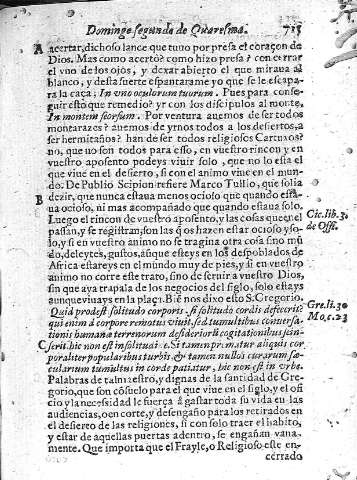 Domingo segundo de Quaresma. 715
A acertar, dichoso lance que tuuo por presa el coraçon de
Dios. Mas como acertò? como hizo presa? con cerrar
el vno de los ojos, y dexar abierto el que miraua al
blanco, y desta suerte espantarame yo que se le escapa-
ra la caça; In vno oculorum tuorum. Pues para conse-
guir esto que remedio? yr con los discipulos al monte,
In montem seorsum. Por ventura auemos de ser todos
montarazes? auemos de yrnos todos a los desiertos, a
ser hermitaños? han de ser todos religiosos Cartuxos?
no, que no son todos para esso, en vuestro rincon y en
vuestro aposento podeys viuir solo, que no lo està el
que viue en el desierto, si con el animo viue en el mun-
do. De Publio Scipion refiere Marco Tullio, que solia
B dezir, que nunca estaua menos ocioso que quando esta-
ua ocioso, ni mas acompañado que quando estaua solo.
Luego el rincon de vuestro aposento, y las cosas que en el
passan, y se registran, son las q̃ os hazen estar ocioso y so-
lo, y si en vuestro animo no se tragina otra cosa sino mũ
do, deleytes, gustos, aũque esteys en los despoblados de
Africa estareys en el mundo muy de pies, y si en vuestro
animo no corre este trato, sino de seruir a vuestro Dios,
sin que aya trapala de los negocios del siglo, solo estays
aunque viuays en la plaça. Biẽ nos dixo esto S. Gregorio.
Quid prodest solitudo corporis, si solitudo cordis defecerit?
qui enim corpore remotus viuit, sed tumultibus conuersa-
tionis humanæ terrenorum desideriorum cogitationibus se in-
C serit: hic non est in solitudine. Si tamen prematur aliquis cor-
poraliter popularibus turbis, & tamen nullos curarum sæ-
cularum tumultus in corde patiatur, hic non est in vrbe.
Palabras de tal maestro, y dignas de la santidad de Gre-
gorio, que son cõsuelo para el que viue en el siglo, y el ofi
cio y la necesidad le fuerça à gastar toda su vida en las
audiencias, o en corte, y desengaño para los retirados en
el desierto de las religiones, si con solo traer el habito,
y estar de aquellas puertas adentro, se engañan vana-
mente. Que importa que el Frayle, o Religioso estè en-
cerrado
Cic. lib. 3.
de Offi.
Gre. li. 30
Mo, c. 23